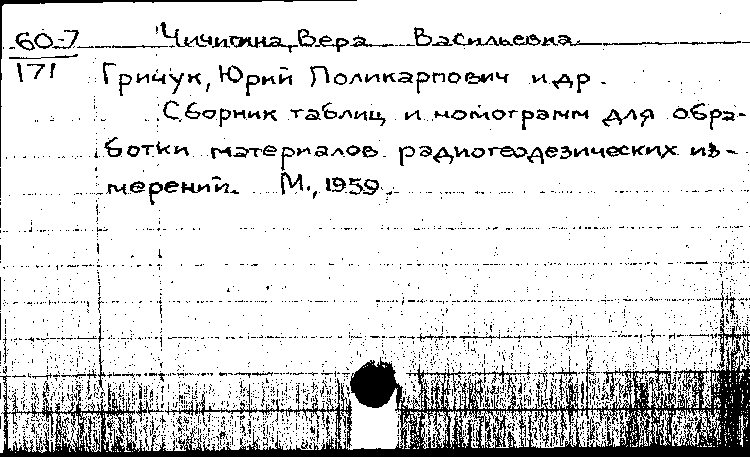 60-7 Чичигина, Вера Васильевна
171 Гричук, Юрий Поликарпович и др.
Сборник таблиц и номограмм для обра-
ботки материалов радиогеодезических из-
мерений. М., 1959.